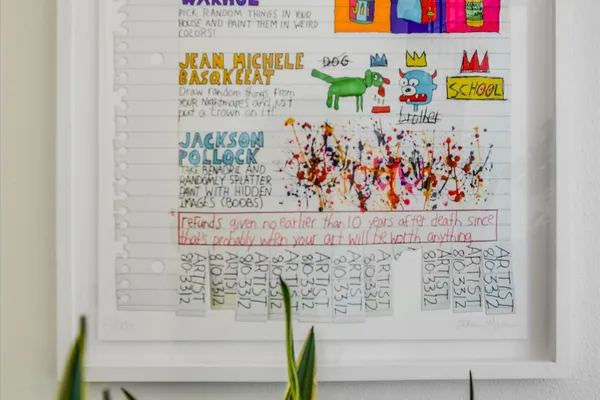 WARHOL
PICK RANDOM THINGS IN YOUR
HOUSE AND PAINT THEM IN WEIRD
COLORS!
JEAN MICHELE
BASQKEEAT
Draw random things from
your nightmares and just
put a crown on it!
DOG
SCHOOL
brother
JACKSON
POLLOCK
TAKE BENADRIL AND
RANDOMLY SPLATTER
PAINT WITH HIDDEN
IMAGES (BOOBS)
*refunds given no earlier than 10 years after death since
that's probably when your art will be worth anything
ARTIST
810.3312
ARTIST
810.3312
ARTIST
810.3312
ARTIST
810.3312
ARTIST
810.3312
ARTIST
810.3312
ARTIST
810.3312
ARTIST
810.3312
ARTIST
810.3312
ARTIST
810.3312